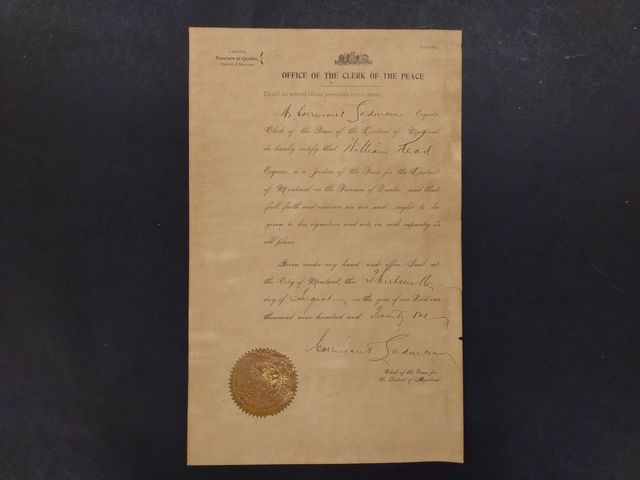 CANADA,
Province of Quebec,
District of Montreal.
OFFICE OF THE CLERK OF THE PEACE
To all to whom these presents shall come,
Esquire,
Clerk of the Peace of the District of Montreal
do hereby certify that William Read
Esquire, is a Justice of the Peace for the District
of Montreal in the Province of Quebec and that
full faith and credence are due and ought to be
given to his signature and acts in such capacity in
all places
Given under my hand and office Seal at
the City of Montreal, this Thirteenth
day of August in the year of our Lord one
thousand nine hundred and Twenty One
Clerk of the Peace for
the District of Montreal